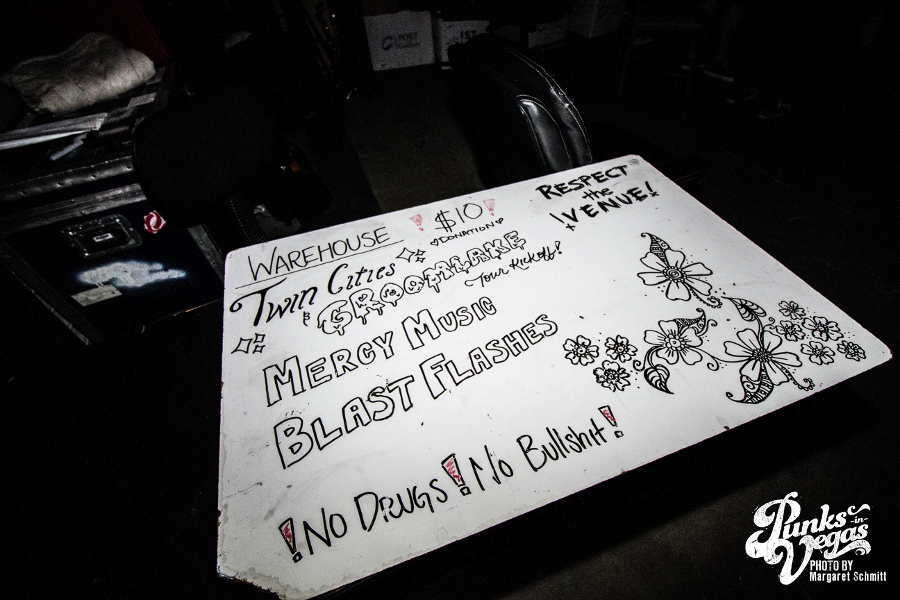 WAREHOUSE
! $10 !
♡DONATION♡
RESPECT
the
VENUE!
Twin Cities
& GROOMLAKE
Tour Kickoff!
MERCY MUSIC
BLAST FLASHES
!NO DRUGS! No Bullshit!
Punks
-in-
Vegas
PHOTO BY
Margaret Schmitt